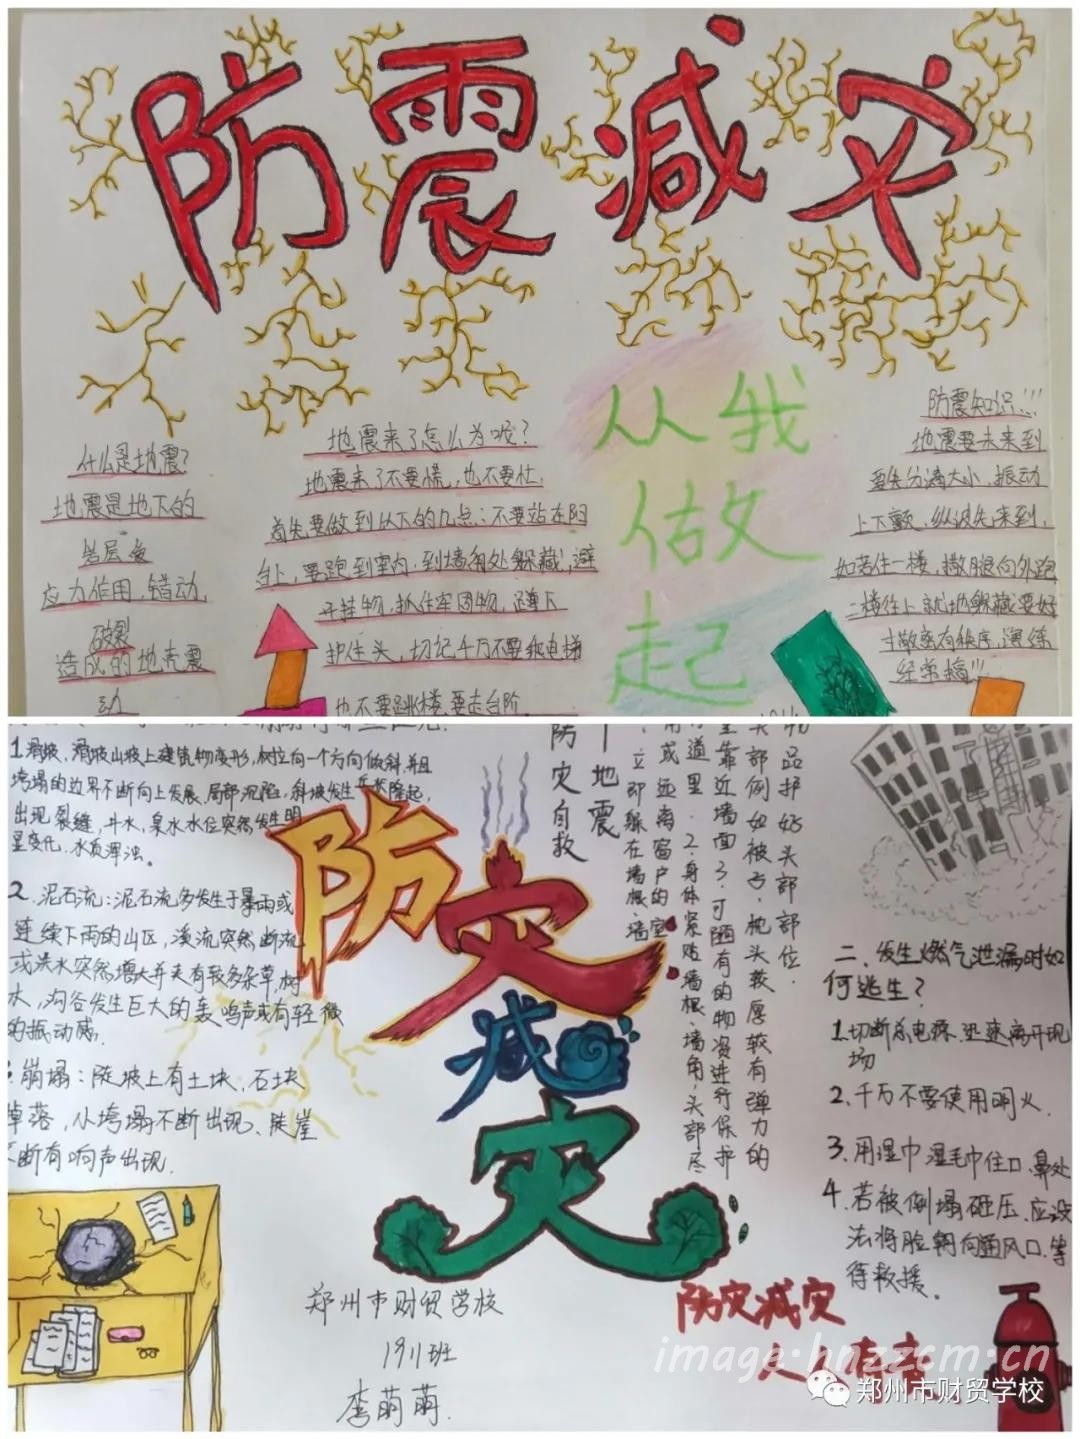 防震减灾
什么是地震?
地震是地下的
岩层受
应力作用,错动,
破裂
造成的地壳震
动
地震来了怎么为呢?
地震来了不要慌,也不要忙.
首先要做到以下的几点:不要站在阳
台上,要跑到室内.到墙角处躲藏,避
开挂物,抓住牢固物,蹲下
护住头,切记千万不要乘电梯
也不要跳楼,要走台阶
从我
做
起
防震知识!!!
地震要未来到
上下颤,纵波先来到,
如若住一楼,撒腿向外跑
二楼往上就地躲藏要好
经常搞!!!
1.滑坡,滑坡山坡上建筑物变形,树位向一个方向倾斜,并且
垮塌的边界不断向上发展.局部沉陷,斜坡发生
隆起,
出现裂缝,井水,泉水水位突然发生明
显变化.水质浑浊。
2.泥石流:泥石流多发生于暴雨或
连续下雨的山区,溪流突然断流
或洪水突然增大并夹有较多杂草,树
木,沟谷发生巨大的轰鸣声或有轻微
的振动感.
崩塌:陡坡上有土块,石块
掉落,小垮塌不断出现、陡崖
断有响声出现.
防灾减灾
防灾自救
一地震
立即躲在墙根、墙
用或远离窗户的室
道里.2.身体紧贴墙根、墙角,头部尽
靠近墙面3.可随有的物资进行保护
头部例如被子、枕头较厚较有弹力的
物品护好头部部位.
二、发生燃气泄漏时如
何逃生?
1.切断总电源.迅速离开现
场
2.千万不要使用明火.
3.用湿巾湿毛巾住口、鼻处
4.若被倒塌砸压、应设
法将脸朝向通风口、等
待救援。
郑州市财贸学校
1911班
李萌萌.
防灾减灾
人人有责
image.hnzzcm.cn
郑州市财贸学校